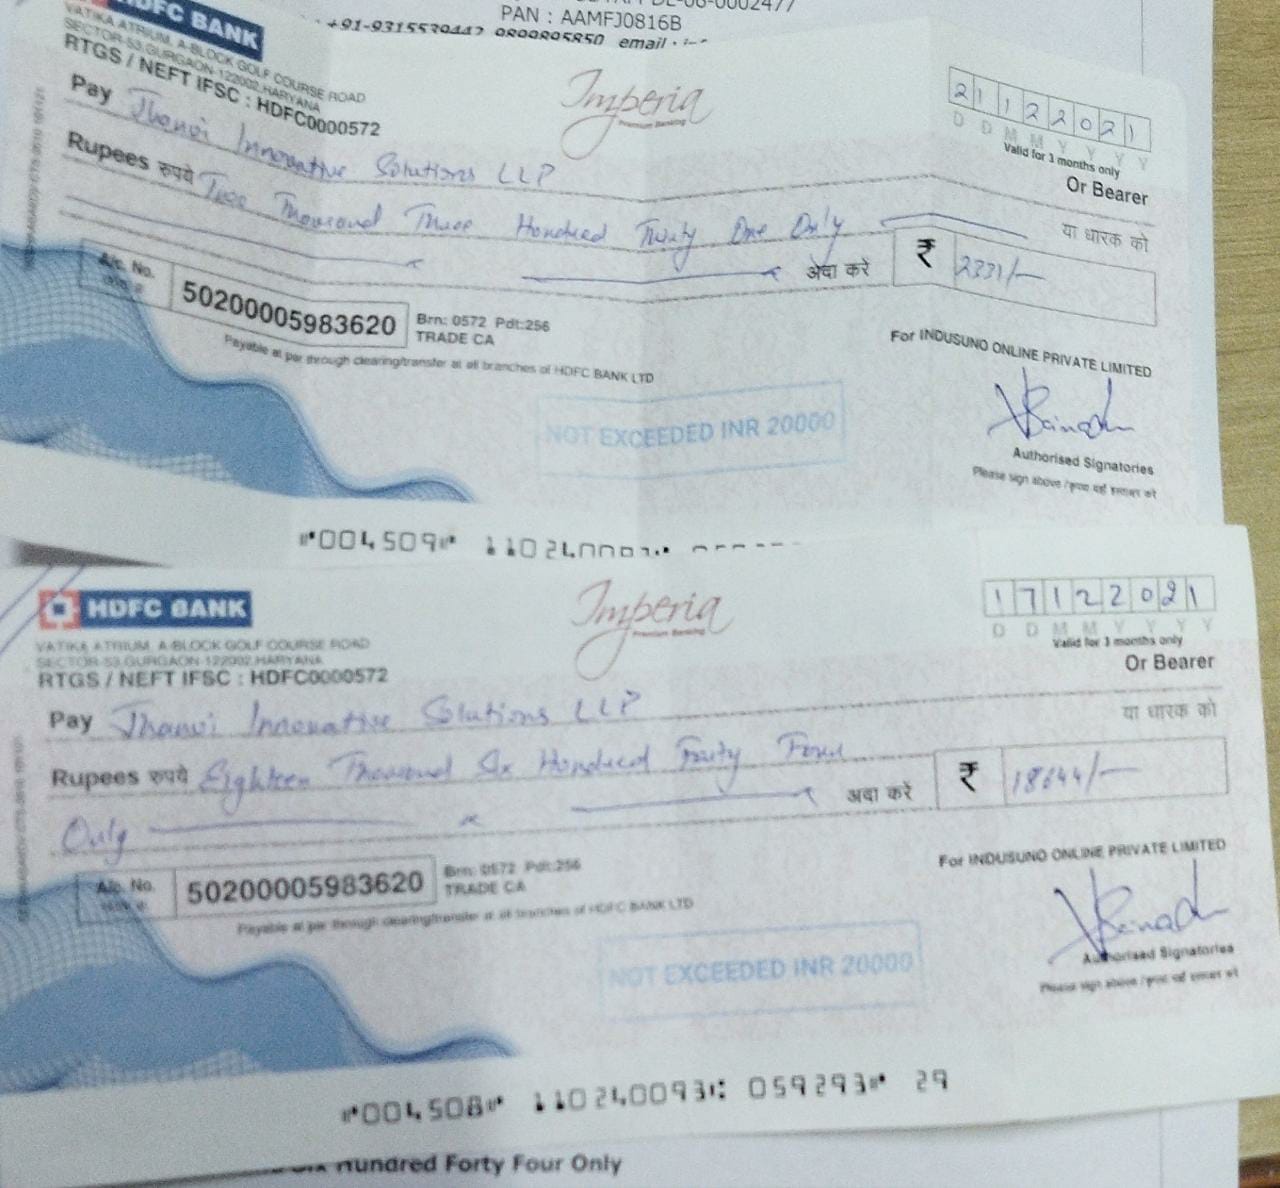 PAN : AAMFJ0816B
+91-9315539447, 9899895850 email :
HDFC BANK
VATIKA ATRIUM, A-BLOCK GOLF COURSE ROAD
SECTOR-53,GURGAON-122002,HARYANA
RTGS / NEFT IFSC : HDFC0000572
Imperia
Premium Banking
21122021
D D M M Y Y Y Y
Valid for 3 months only
Pay Jhanvi Innovative Solutions LLP
Or Bearer
या धारक को
Rupees रुपये Two Thousand Three Hundred Thirty One Only
अदा करें
₹ 2331/-
A/c. No.
50200005983620
Brn: 0572 Pdt:256
TRADE CA
Payable at par through clearing/transfer at all branches of HDFC BANK LTD
For INDUSUNO ONLINE PRIVATE LIMITED
NOT EXCEEDED INR 20000
Authorised Signatories
Please sign above /
⑈004509⑈
HDFC BANK
VATIKA ATRIUM, A-BLOCK GOLF COURSE ROAD
SECTOR-53,GURGAON-122002,HARYANA
RTGS / NEFT IFSC : HDFC0000572
Imperia
Premium Banking
17122021
D D M M Y Y Y Y
Valid for 3 months only
Or Bearer
Pay Jhanvi Innovative Solutions LLP
या धारक को
Rupees रुपये Eighteen Thousand Six Hundred Forty Four
Only
अदा करें
₹ 18644/-
A/c. No.
50200005983620
Brn: 0572 Pdt:256
TRADE CA
Payable at par through clearing/transfer at all branches of HDFC BANK LTD
For INDUSUNO ONLINE PRIVATE LIMITED
NOT EXCEEDED INR 20000
Authorised Signatories
Please sign above /
⑈004508⑈ 110240093⑆ 059293⑈ 29
Six Hundred Forty Four Only